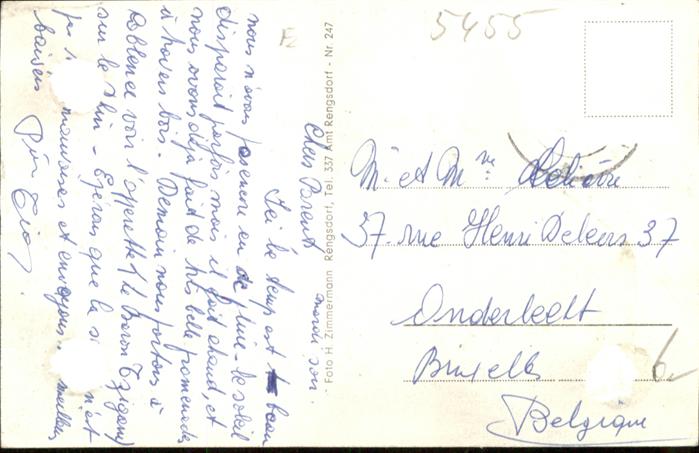 5455
Cher Parent
mardi soir.
Ici le temps est bon
nous n'avons pas encore eu de pluie - le soleil
disparait parfois mais il fait chaud, et
nous avons déjà fait de très belle promenade
à travers bois. Demain nous partons à
Koblence voir l'opperette (le Baron Tzigane)
sur le Rhin - Espérons que la si n'est
pas mauvaises et envoyons meilleurs
baisers
Foto H. Zimmermann Rengsdorf, Tel. 337 Amt Rengsdorf - Nr. 247
M. et Mme
37. rue Henri Deleers 37
Anderlecht
Bruxelles
6.-
Belgique